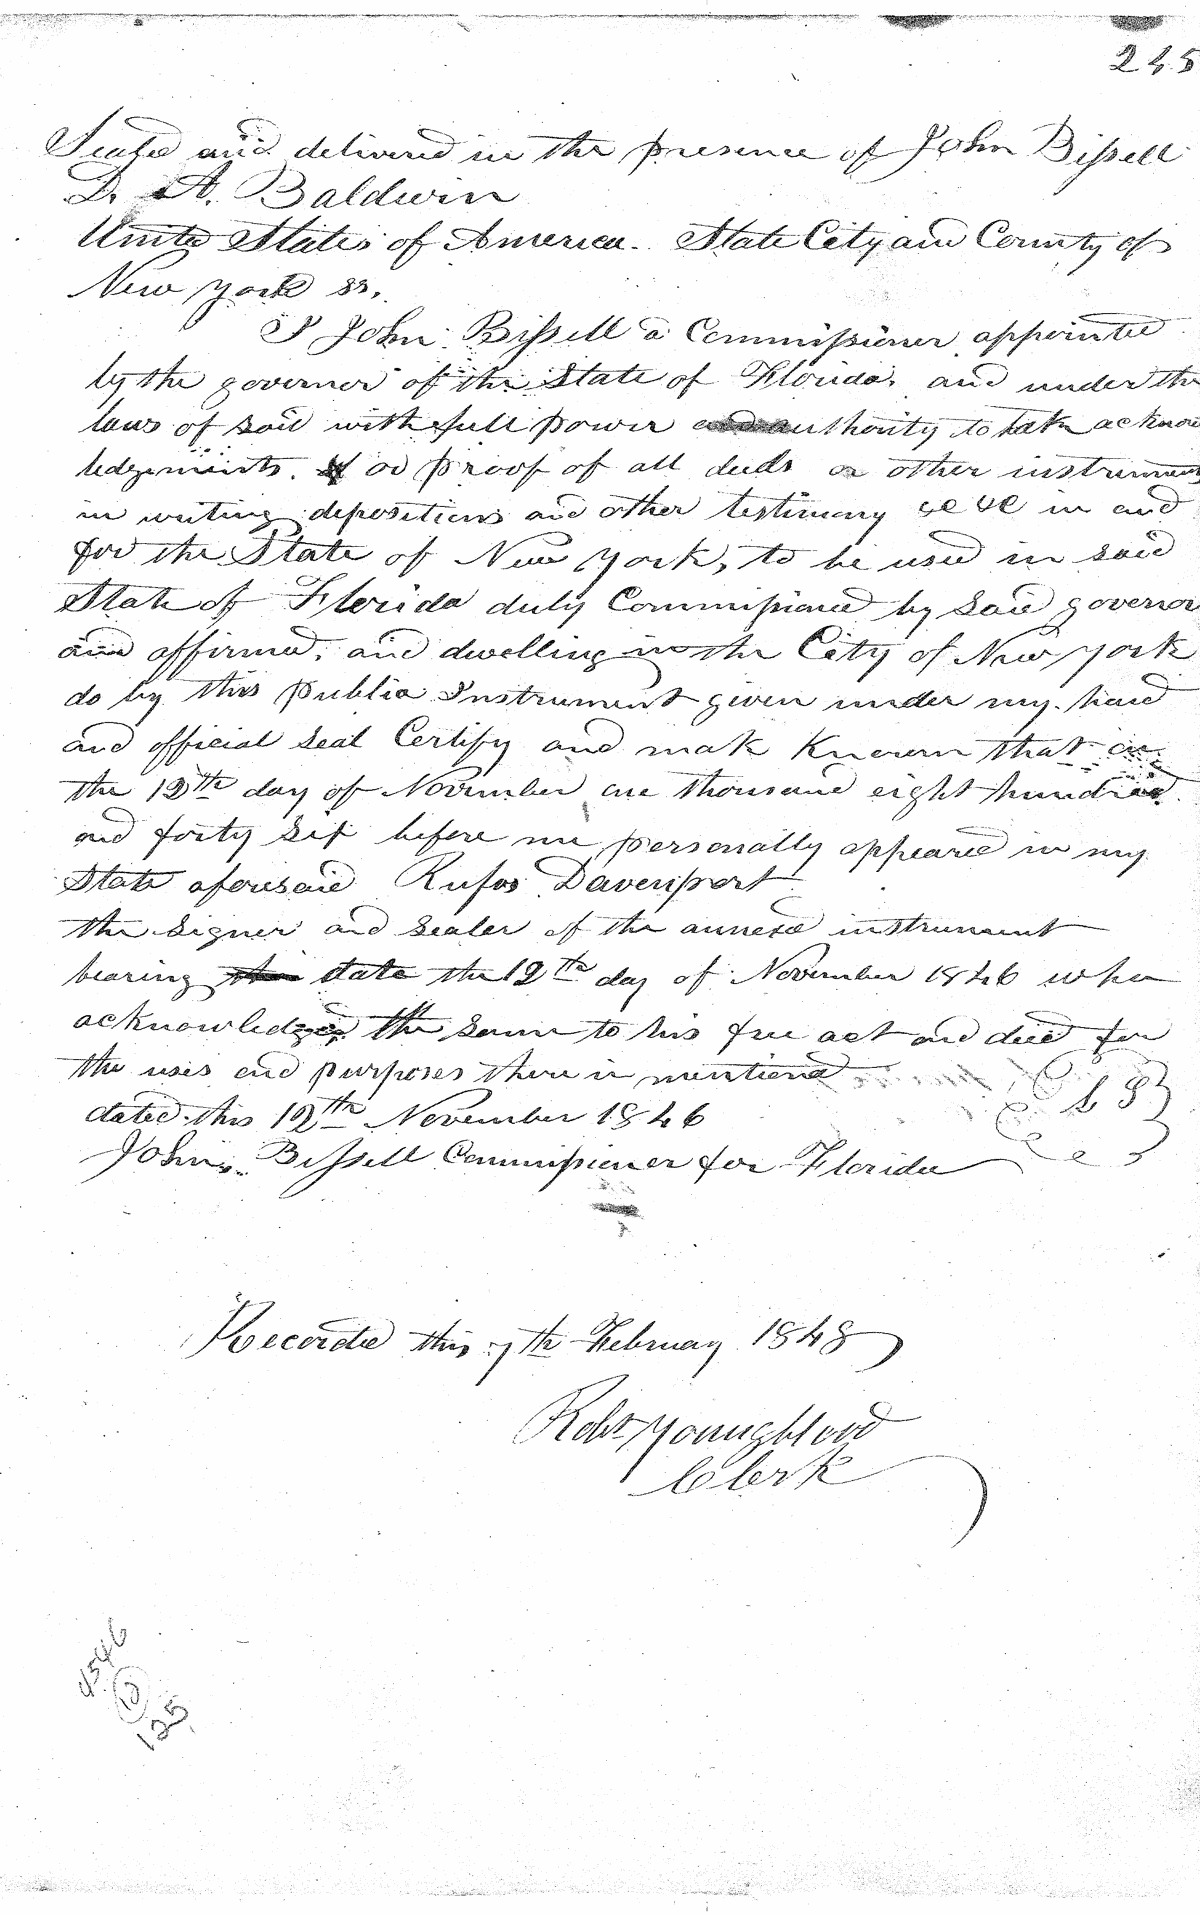 245
Sealed and delivered in the presence of John Bissell
D. A. Baldwin
United States of America. State City and County of
New York ss.
I John Bissell a Commissioner appointed
by the governor of the State of Florida, and under the
laws of said with full power authority to take acknow
ledgements. or proof of all deeds or other instruments
in writing depositions and other testimony &c &c in and
for the State of New York, to be used in said
State of Florida duly Commissioned by said governor
and affirmed, and dwelling in the City of New York
do by this public Instrument given under my hand
and official seal Certify and make known that on
the 12th day of November one thousand eight hundred
and forty six before me personally appeared in my
State aforesaid Rufos Davenport
the signer and sealer of the annexed instrument
bearing date the 12th day of November 1846 who
acknowledged the same to his free act and deed for
the uses and purposes there in mentiond
dated this 12th November 1846
L S
John Bissell Commissioner for Florida
Recorded this 7th February 1848
Robt Youngblood
Clerk